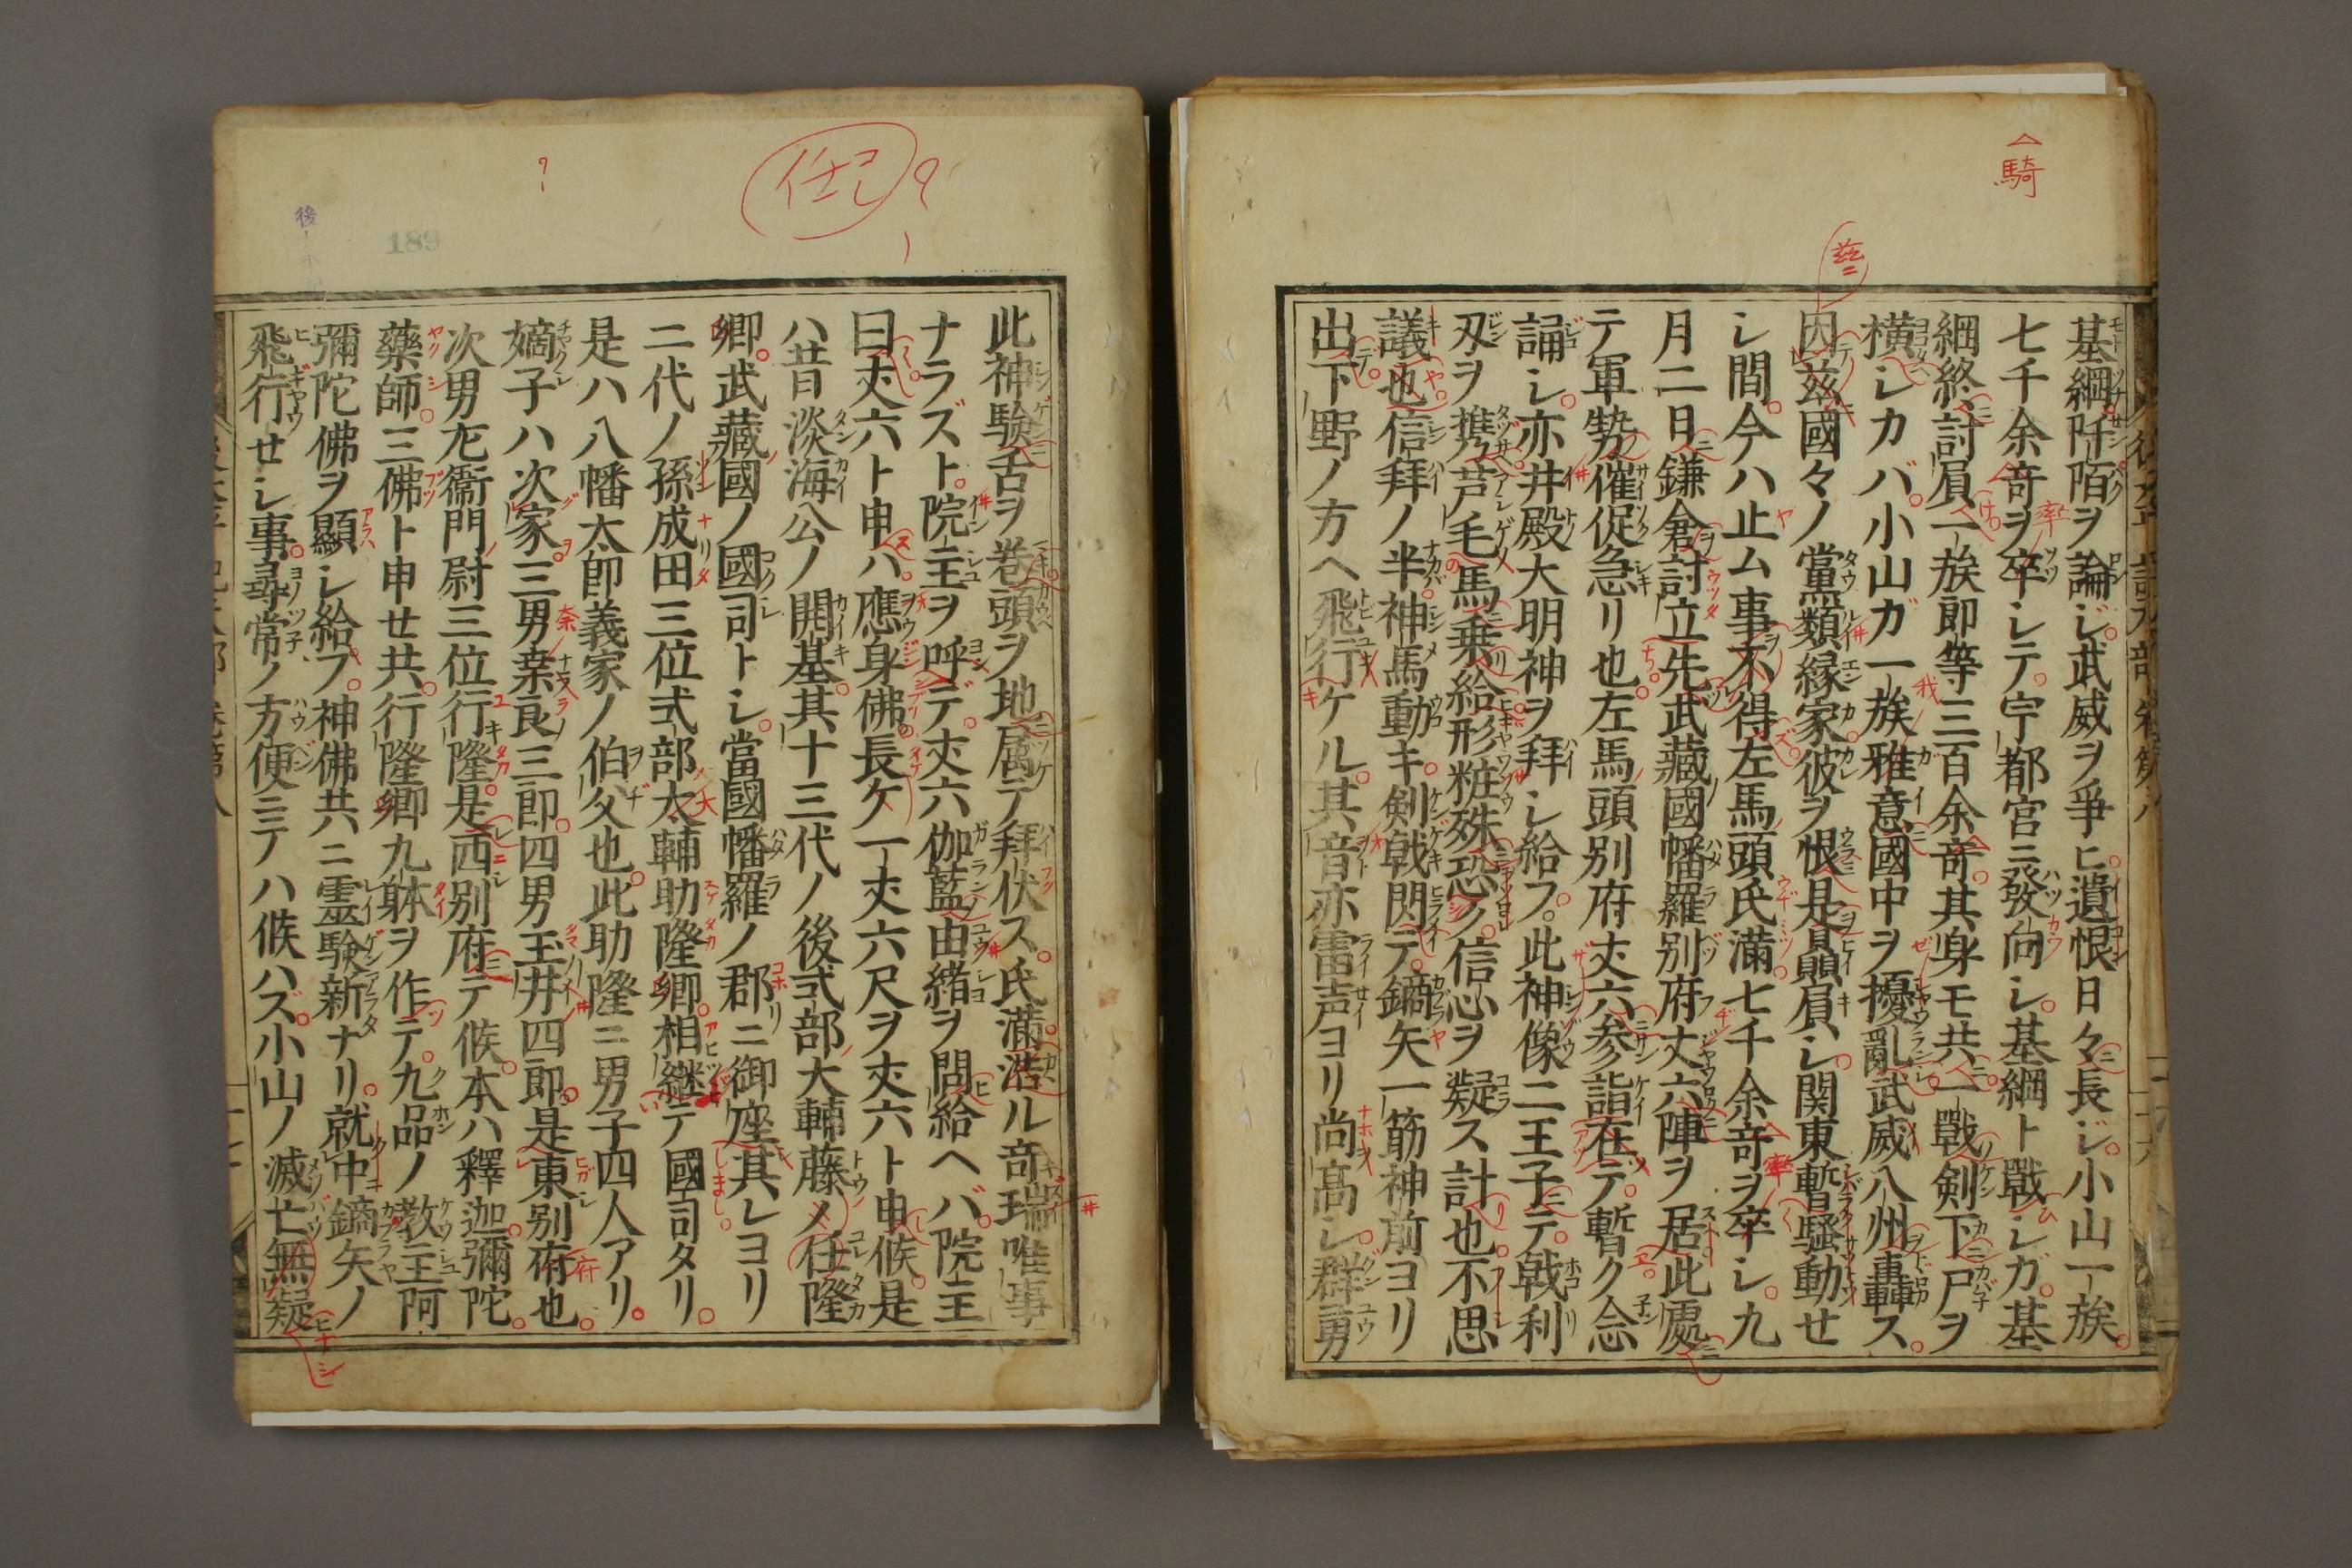 騎
玆ニ
基綱阡陌ヲ論ジ武威ヲ爭ヒ遺恨日々長ジ小山一族
七千余竒ヲ卒シテ宇都宮ニ發向シ基綱ト戰シガ基
綱終討屓一族郎等三百余竒其身モ共一戰剣下尸ヲ
横シカバ小山ガ一族雅意國中ヲ擾亂武威八州轟ス
因茲國々ノ黨類縁家彼ヲ恨是贔屓シ関東暫騒動せ
シ間今ハ止ム事不得左馬頭氏滿七千余竒ヲ卒シ九
月二日鎌倉討立先武藏國幡羅別府丈六陣ヲ居此處
テ軍勢催促急リ也左馬頭別府𠀋六参詣在テ暫ク念
誦シ亦井殿大明神ヲ拜シ給フ此神像二王子テ戟利
刄ヲ携芦毛馬乗給形粧殊恐ク信心ヲ凝ス計也不思
議也信拜ノ半神馬動キ剣戟閃テ鏑矢一筋神前ヨリ
出下野ノ方ヘ飛行ケル其音亦雷声ヨリ尚髙シ群勇
任シ
?
189
後
此神驗舌ヲ巻頭ヲ地属テ拜伏ス氏滿浩ル竒瑞唯事
ナラズト院主ヲ呼デ𠀋六伽藍由緒ヲ問給ヘバ院主
曰𠀋六ト申ハ應身佛長ケ一𠀋六尺ヲ𠀋六ト申候是
ハ昔淡海公ノ開基其十三代ノ後式部大輔藤ノ任隆
卿武藏國ノ國司トシ當國幡羅ノ郡ニ御座其レヨリ
二代ノ孫成田三位式部太輔助隆卿相継テ國司タリ
是ハ八幡太郎義家ノ伯父也此助隆ニ男子四人アリ
嫡子ハ次家三男奈良三郎四男玉井四郎是東別府也
次男左衞門尉三位行隆是西別府テ候本ハ釋迦彌陀
藥師三佛ト申せ共行隆卿九躰ヲ作テ九品ノ教主阿
彌陀佛ヲ顯シ給フ神佛共ニ霊驗新ナリ就中鏑矢ノ
飛行せシ事尋常ノ方便ニテハ候ハズ小山ノ滅亡無疑